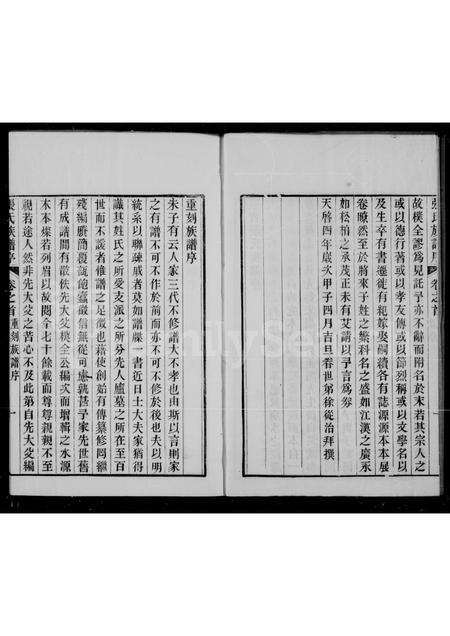 張氏族譜序 卷之首
故樸全謬為見託予亦不辭而附名於末若其宗人之
或以德行著或以孝友傳或以節烈稱或以文學名以
及生卒有書遷徙有紀嫁娶嗣續各有誌源源本本展
卷瞭然至於將來子姓之繁科名之盛如江漢之廣永
如松柏之承茂正未有艾請以予言為券
天啓四年歲次甲子四月吉旦眷世弟徐從治拜撰
重刻族譜序
朱子有云人家三代不修譜大不孝也由斯以言則家
之有譜不可不作於前而亦不可不修於後也夫以明
統系以聯疎戚者莫如譜牒一書近日士大夫家猶得
識其姓氏之所受支派之所分先人廬墓之所在至百
世而不誤者惟譜之足徵也藉使創始有傳纂修罔繼
殘編賸簡覆瓿飽蠹徵信無從可慮孰甚予家先世舊
有成譜間有散佚先大父樸全公編次而增輯之水源
木本燦若列眉以故閱今七十餘載而尊尊親親不至
視若途人然非先大父之苦心不及此第自先大父編
張氏族譜序 卷之首 重刻族譜序 一
FamilySearch